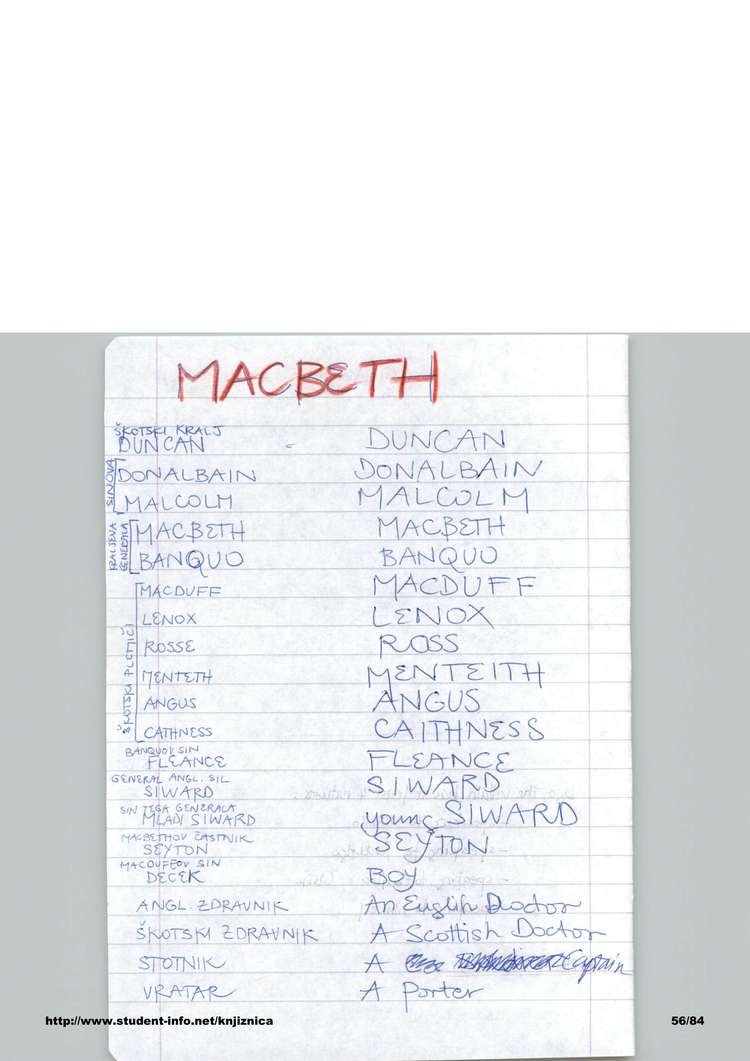 MACBETH
ŠKOTSKI KRALJ
DUNCAN DUNCAN
SINOVA
DONALBAIN DONALBAIN
MALCOLM MALCOLM
KRALJEVA GENERALA
MACBETH MACBETH
BANQUO BANQUO
ŠKOTSKI PLEMIČI
MACDUFF MACDUFF
LENOX LENOX
ROSSE ROSS
MENTETH MENTEITH
ANGUS ANGUS
CATHNESS CAITHNESS
BANQUOV SIN
FLEANCE FLEANCE
GENERAL ANGL. SIL
SIWARD SIWARD
SIN TEGA GENERALA
MLADI SIWARD young SIWARD
MACBETHOV ČASTNIK
SEYTON SEYTON
MACDUFFOV SIN
DEČEK BOY
ANGL. ZDRAVNIK An English Doctor
ŠKOTSKI ZDRAVNIK A Scottish Doctor
STOTNIK A Captain
VRATAR A Porter
http://www.student-info.net/knjiznica 56/84